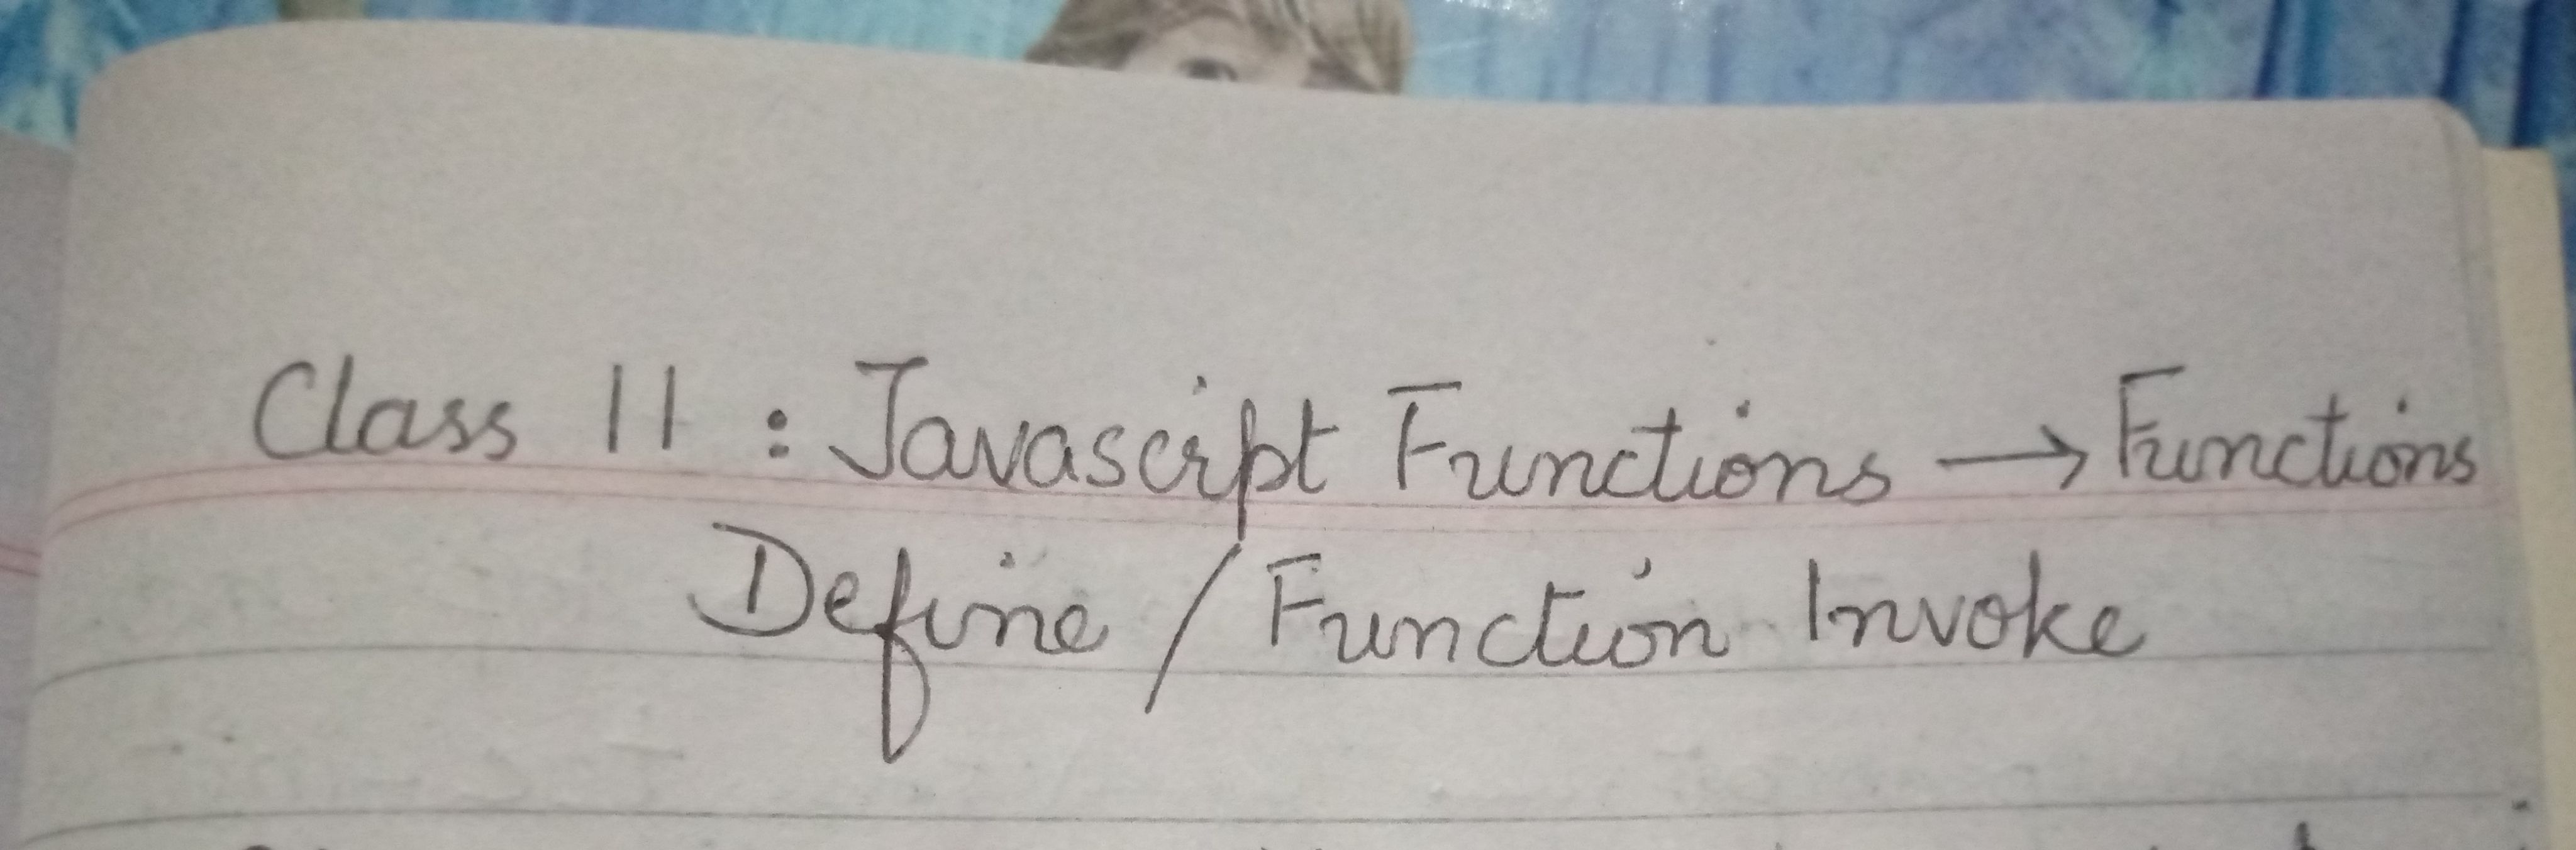 Class 11 : Javascript Functions → Functions
Define / Function Invoke